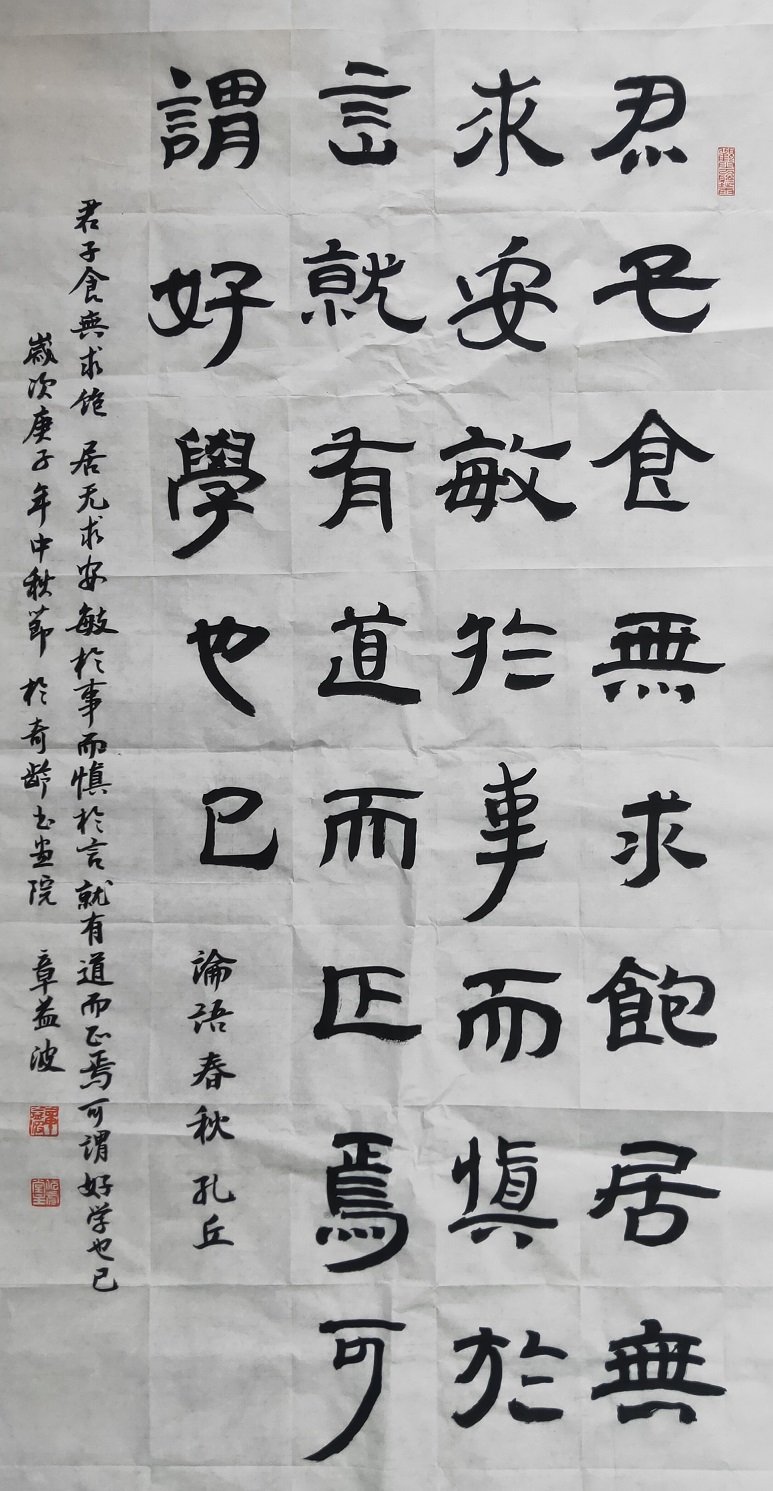 君子食無求飽居無
求安敏於事而慎於
言就有道而正焉可
謂好學也已
論語春秋孔丘
君子食無求飽居无求安敏於事而慎於言就有道而正焉可谓好学也已
歲次庚子年中秋節於奇齡书画院章益波